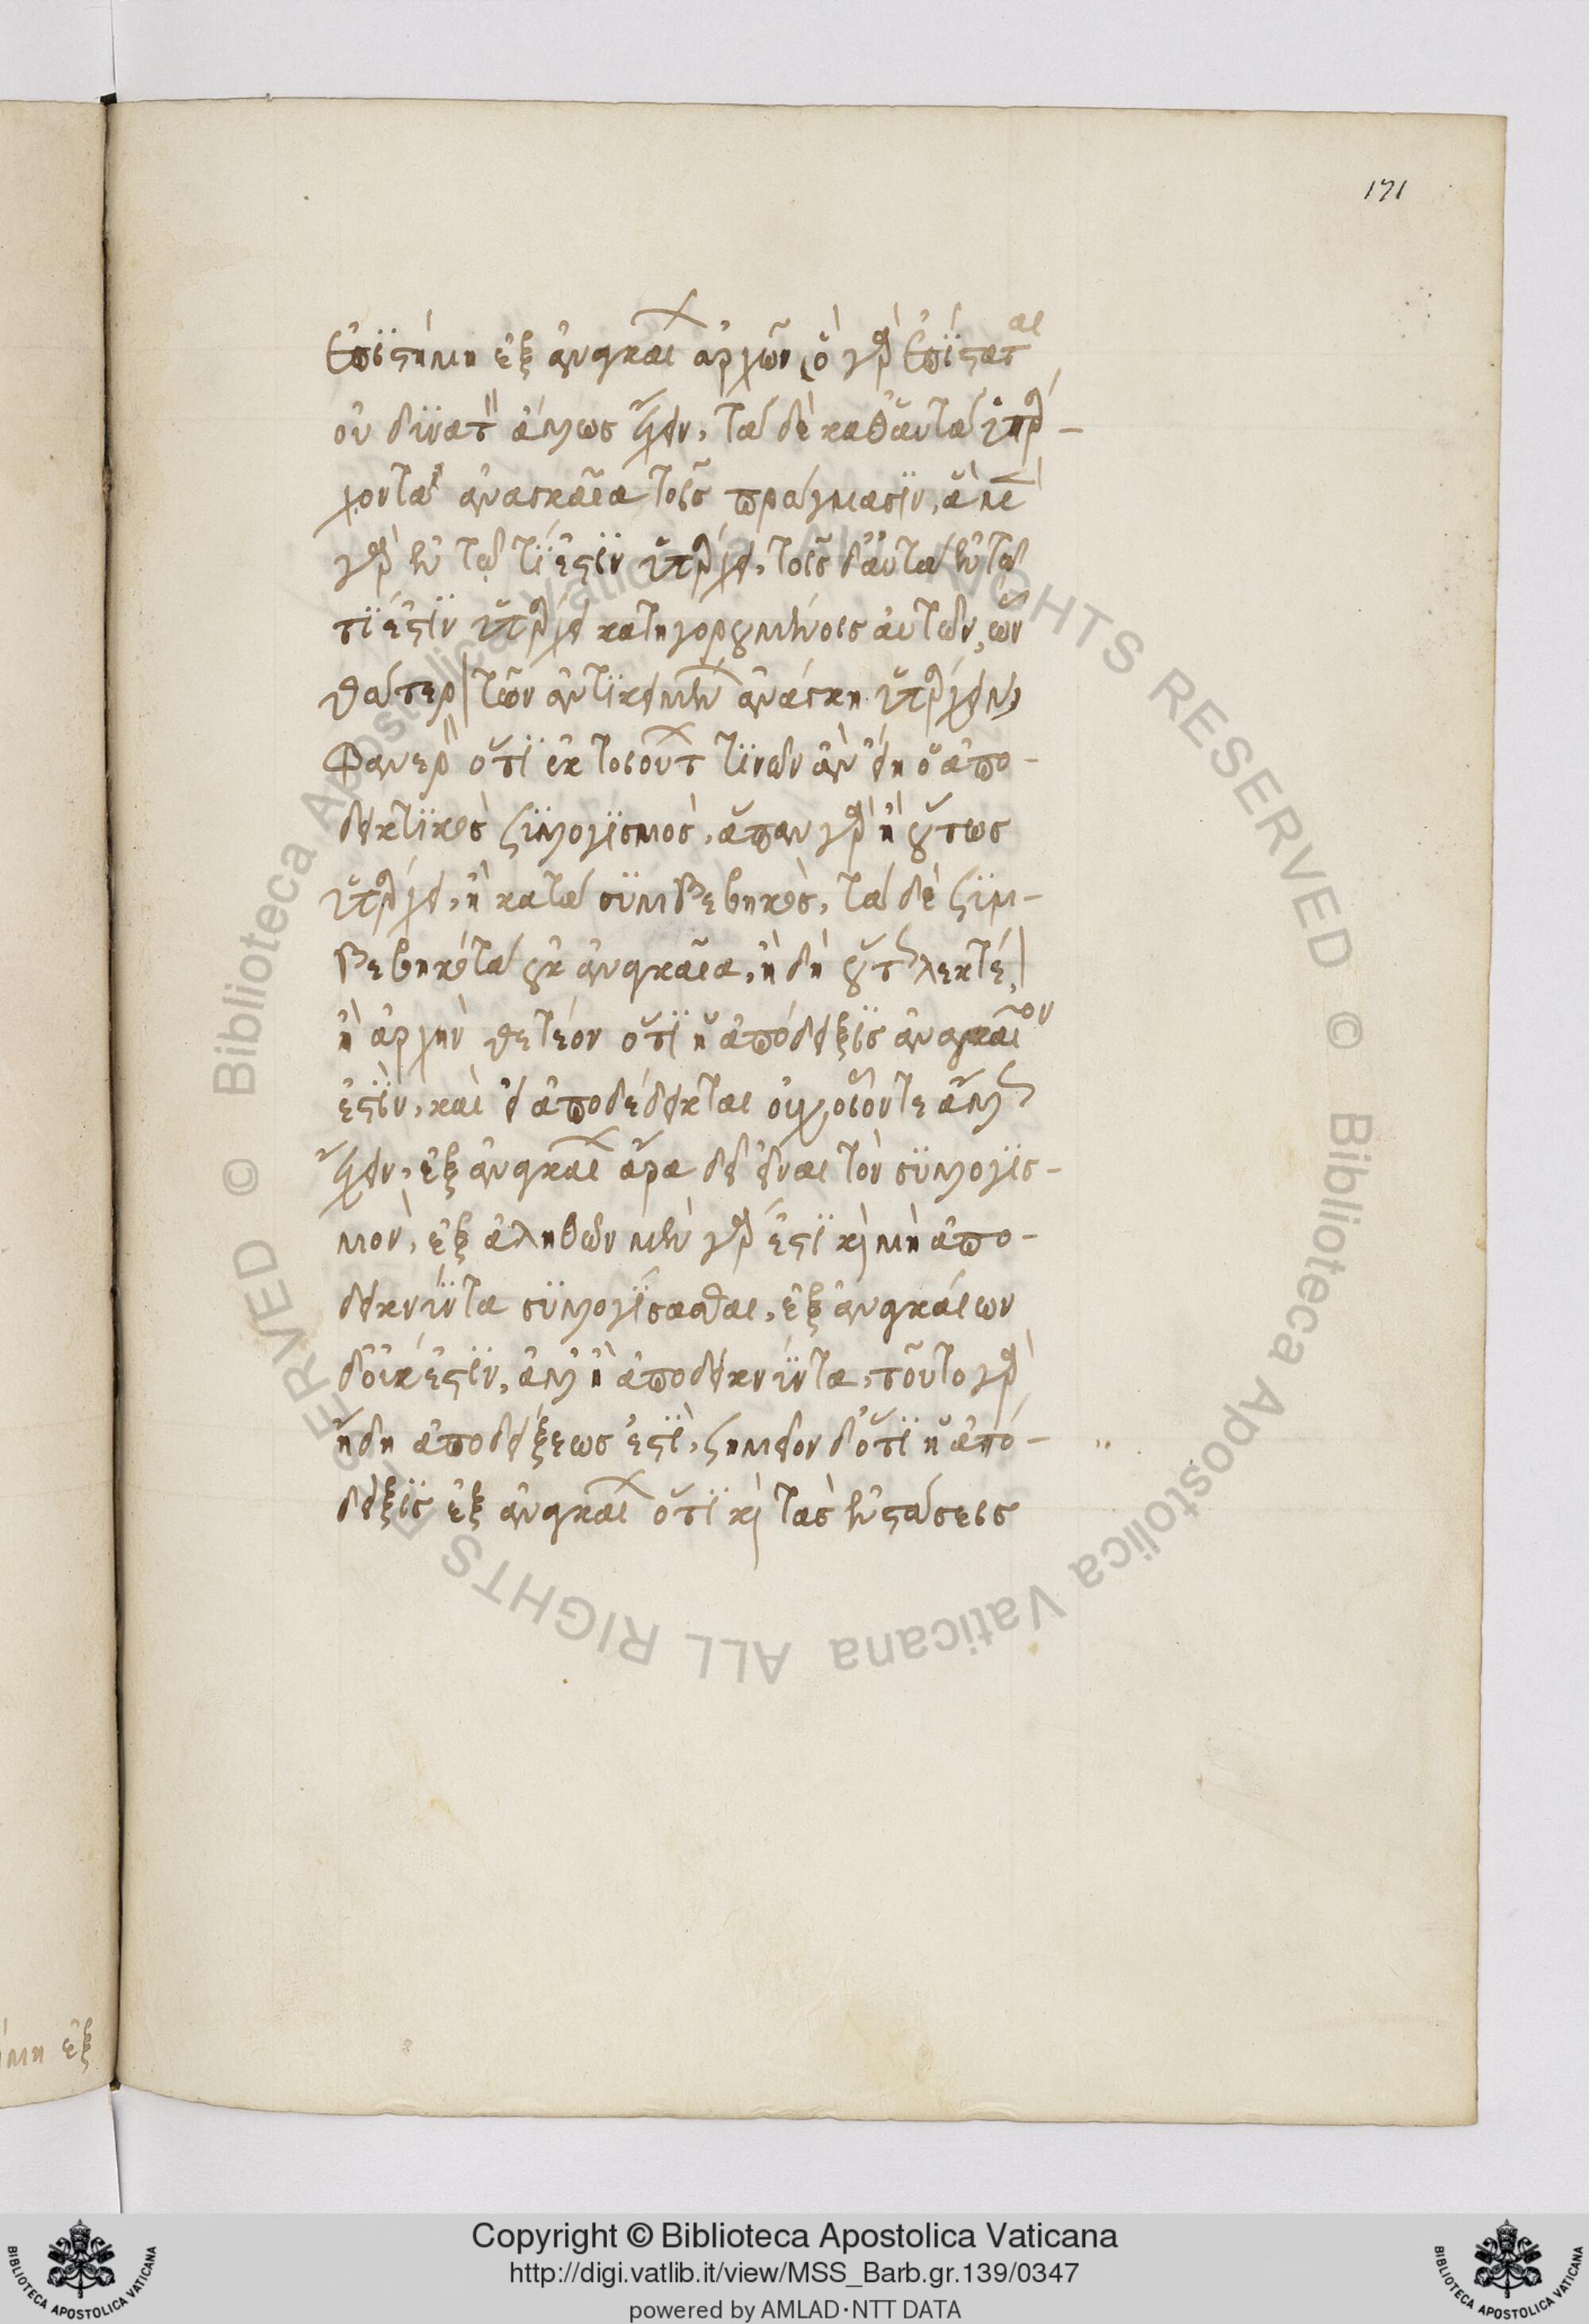 171
ἐπϊστήμη ἐξ ἀναγκαίων ἀρχῶν, ὃ γὰρ ἐπίσταται
οὐ δϋνατὸν ἄλλως ἔχειν, τὰ δὲ καθ' αὑτὰ ὑπάρ-
χοντα ἀναγκαῖα τοῖς πράγμασϊν, ἃ μὲν
γὰρ ἐν τῷ τί ἐστϊν ὑπάρχει, τοῖς δ' αὐτὰ ἐν τῷ
τί ἐστϊν ὑπάρχει κατηγορουμένοις αὐτῶν, ὧν
θάτερον τῶν ἀντϊκειμένων ἀνάγκη ὑπάρχειν,
Φανερὸν ὅτϊ ἐκ τοιούτων τϊνῶν ἂν εἴη ὁ ἀπο-
δεικτϊκὸς ϛϋλλογϊσμὸς, ἅπαν γὰρ ἢ οὕτως
ὑπάρχει, ἢ κατὰ σϋμβεβηκὸς, τὰ δὲ ϛϋμ-
βεβηκότα οὐκ ἀναγκαῖα, ἢ δὴ οὕτως λεκτέον,
ἢ ἀρχὴν θετέον ὅτϊ ἡ ἀπόδειξϊς ἀναγκαῖον
ἐστϊν, καὶ εἰ ἀποδέδεικται οὐχ οἷόντε ἄλλως
ἔχειν, ἐξ ἀναγκαίων ἄρα δεῖ εἶναι τὸν σϋλλογϊσ-
μὸν, ἐξ ἀληθῶν μὲν γὰρ ἔστϊ καὶ μὴ ἀπο-
δεικνϋντα σϋλλογϊσασθαι, ἐξ ἀναγκαίων
δ' οὐκ ἔστϊν, ἀλλ' ἢ ἀποδεικνϋντα, τοῦτο γὰρ
ἤδη ἀποδείξεως ἐστϊ, ϛημεῖον δ' ὅτϊ ἡ ἀπό-
δειξϊς ἐξ ἀναγκαίων ὅτϊ καὶ τὰς ἐνστάσεις
ήμη ἐξ
Copyright © Biblioteca Apostolica Vaticana
http://digi.vatlib.it/view/MSS_Barb.gr.139/0347
powered by AMLAD·NTT DATA
BIBLIOTECA APOSTOLICA VATICANA
BIBLIOTECA APOSTOLICA VATICANA
© Biblioteca Apostolica Vaticana ALL RIGHTS RESERVED © Biblioteca Apostolica Vaticana ALL RIGHTS RESERVED